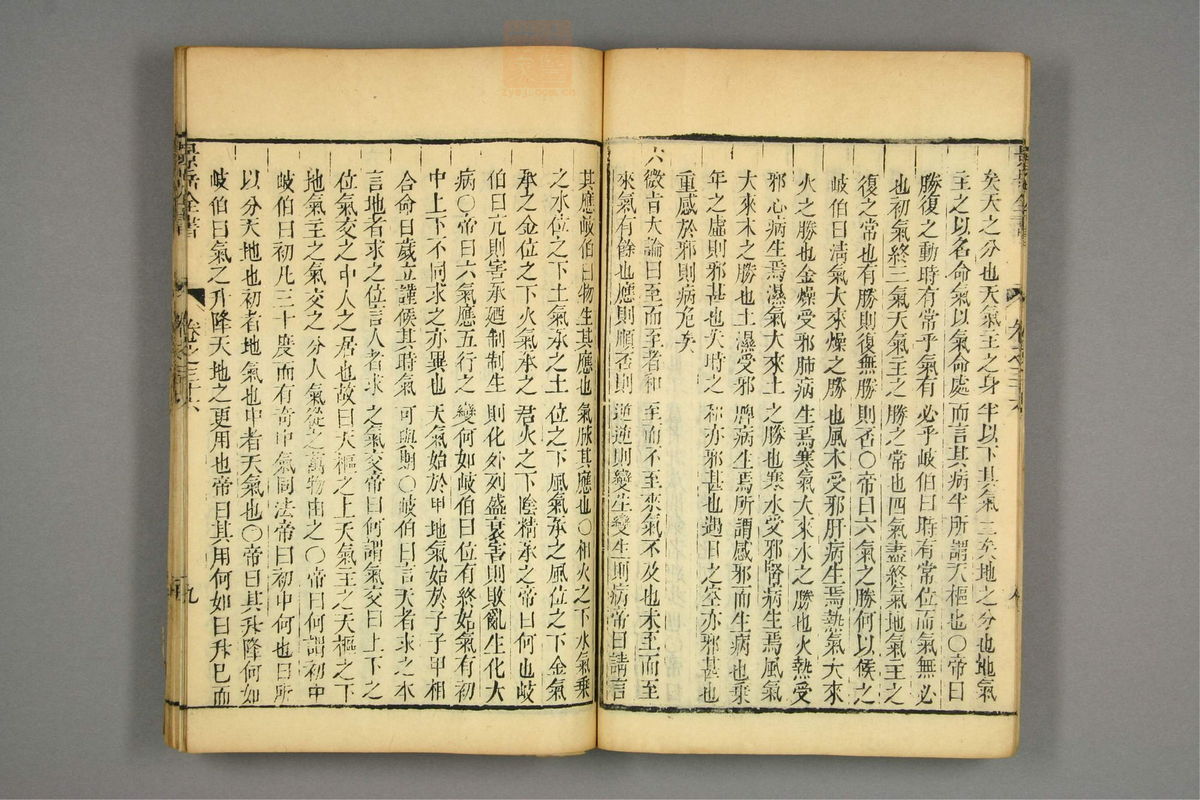 矣天之分也天氣主之身半以下其氣三矣地之分也地氣
主之以名命氣以氣命處而言其病半所謂天樞也〇帝曰
勝復之動時有常乎氣有必乎岐伯曰時有常位而氣無必
也初氣終三氣天氣主之勝之常也四氣盡終氣地氣主之
復之常也有勝則復無勝則否〇帝曰六氣之勝何以候之
岐伯曰清氣大來燥之勝也風木受邪肝病生焉熱氣大來
火之勝也金燥受邪肺病生焉寒氣大來水之勝也火熱受
邪心病生焉濕氣大來土之勝也寒水受邪腎病生焉風氣
大來木之勝也土濕受邪脾病生焉所謂感邪而生病也乘
年之虛則邪甚也失時之和亦邪甚也遇月之空亦邪甚也
重感於邪則病危矣
六微旨大論曰至而至者和至而不至來氣不及也未至而至
來氣有餘也應則順否則逆逆則變生變生則病帝曰請言
其應岐伯曰物生其應也氣脉其應也〇相火之下水氣乗
之水位之下土氣承之土位之下風氣承之風位之下金氣
承之金位之下火氣承之君火之下陰精承之帝曰何也歧
伯曰亢則害承廼制制生則化外列盛衰害則敗亂生化大
病〇帝曰六氣應五行之變何如岐伯曰位有終始氣有初
中上下不同求之亦異也天氣始於甲地氣始於子子甲相
合命曰歲立謹候其時氣可與期〇岐伯曰言天者求之本
言地者求之位言人者求之氣交帝曰何謂氣交曰上下之
位氣交之中人之居也故曰天樞之上天氣主之天樞之下
地氣主之氣交之分人氣從之萬物由之〇帝曰何謂初中
岐伯曰初凡三十度而有奇中氣同法帝曰初中何也曰所
以分天地也初者地氣也中者天氣也〇帝曰其升降何如
岐伯曰氣之升降天地之更用也帝曰其用何如曰升已而
景岳全書
卷之三十六
九